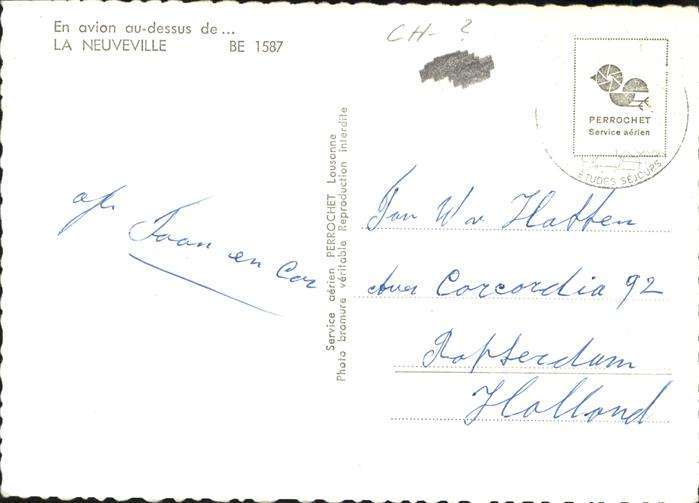 En avion au-dessus de...
LA NEUVEVILLE BE 1587
CH- ?
PERROCHET
Service aérien
ETUDES SÉJOURS
Service aérien PERROCHET Lausanne
Photo bromure véritable Reproduction interdite
Joan en Cor
W v Hatten
Concordia 92
Rotterdam
Holland